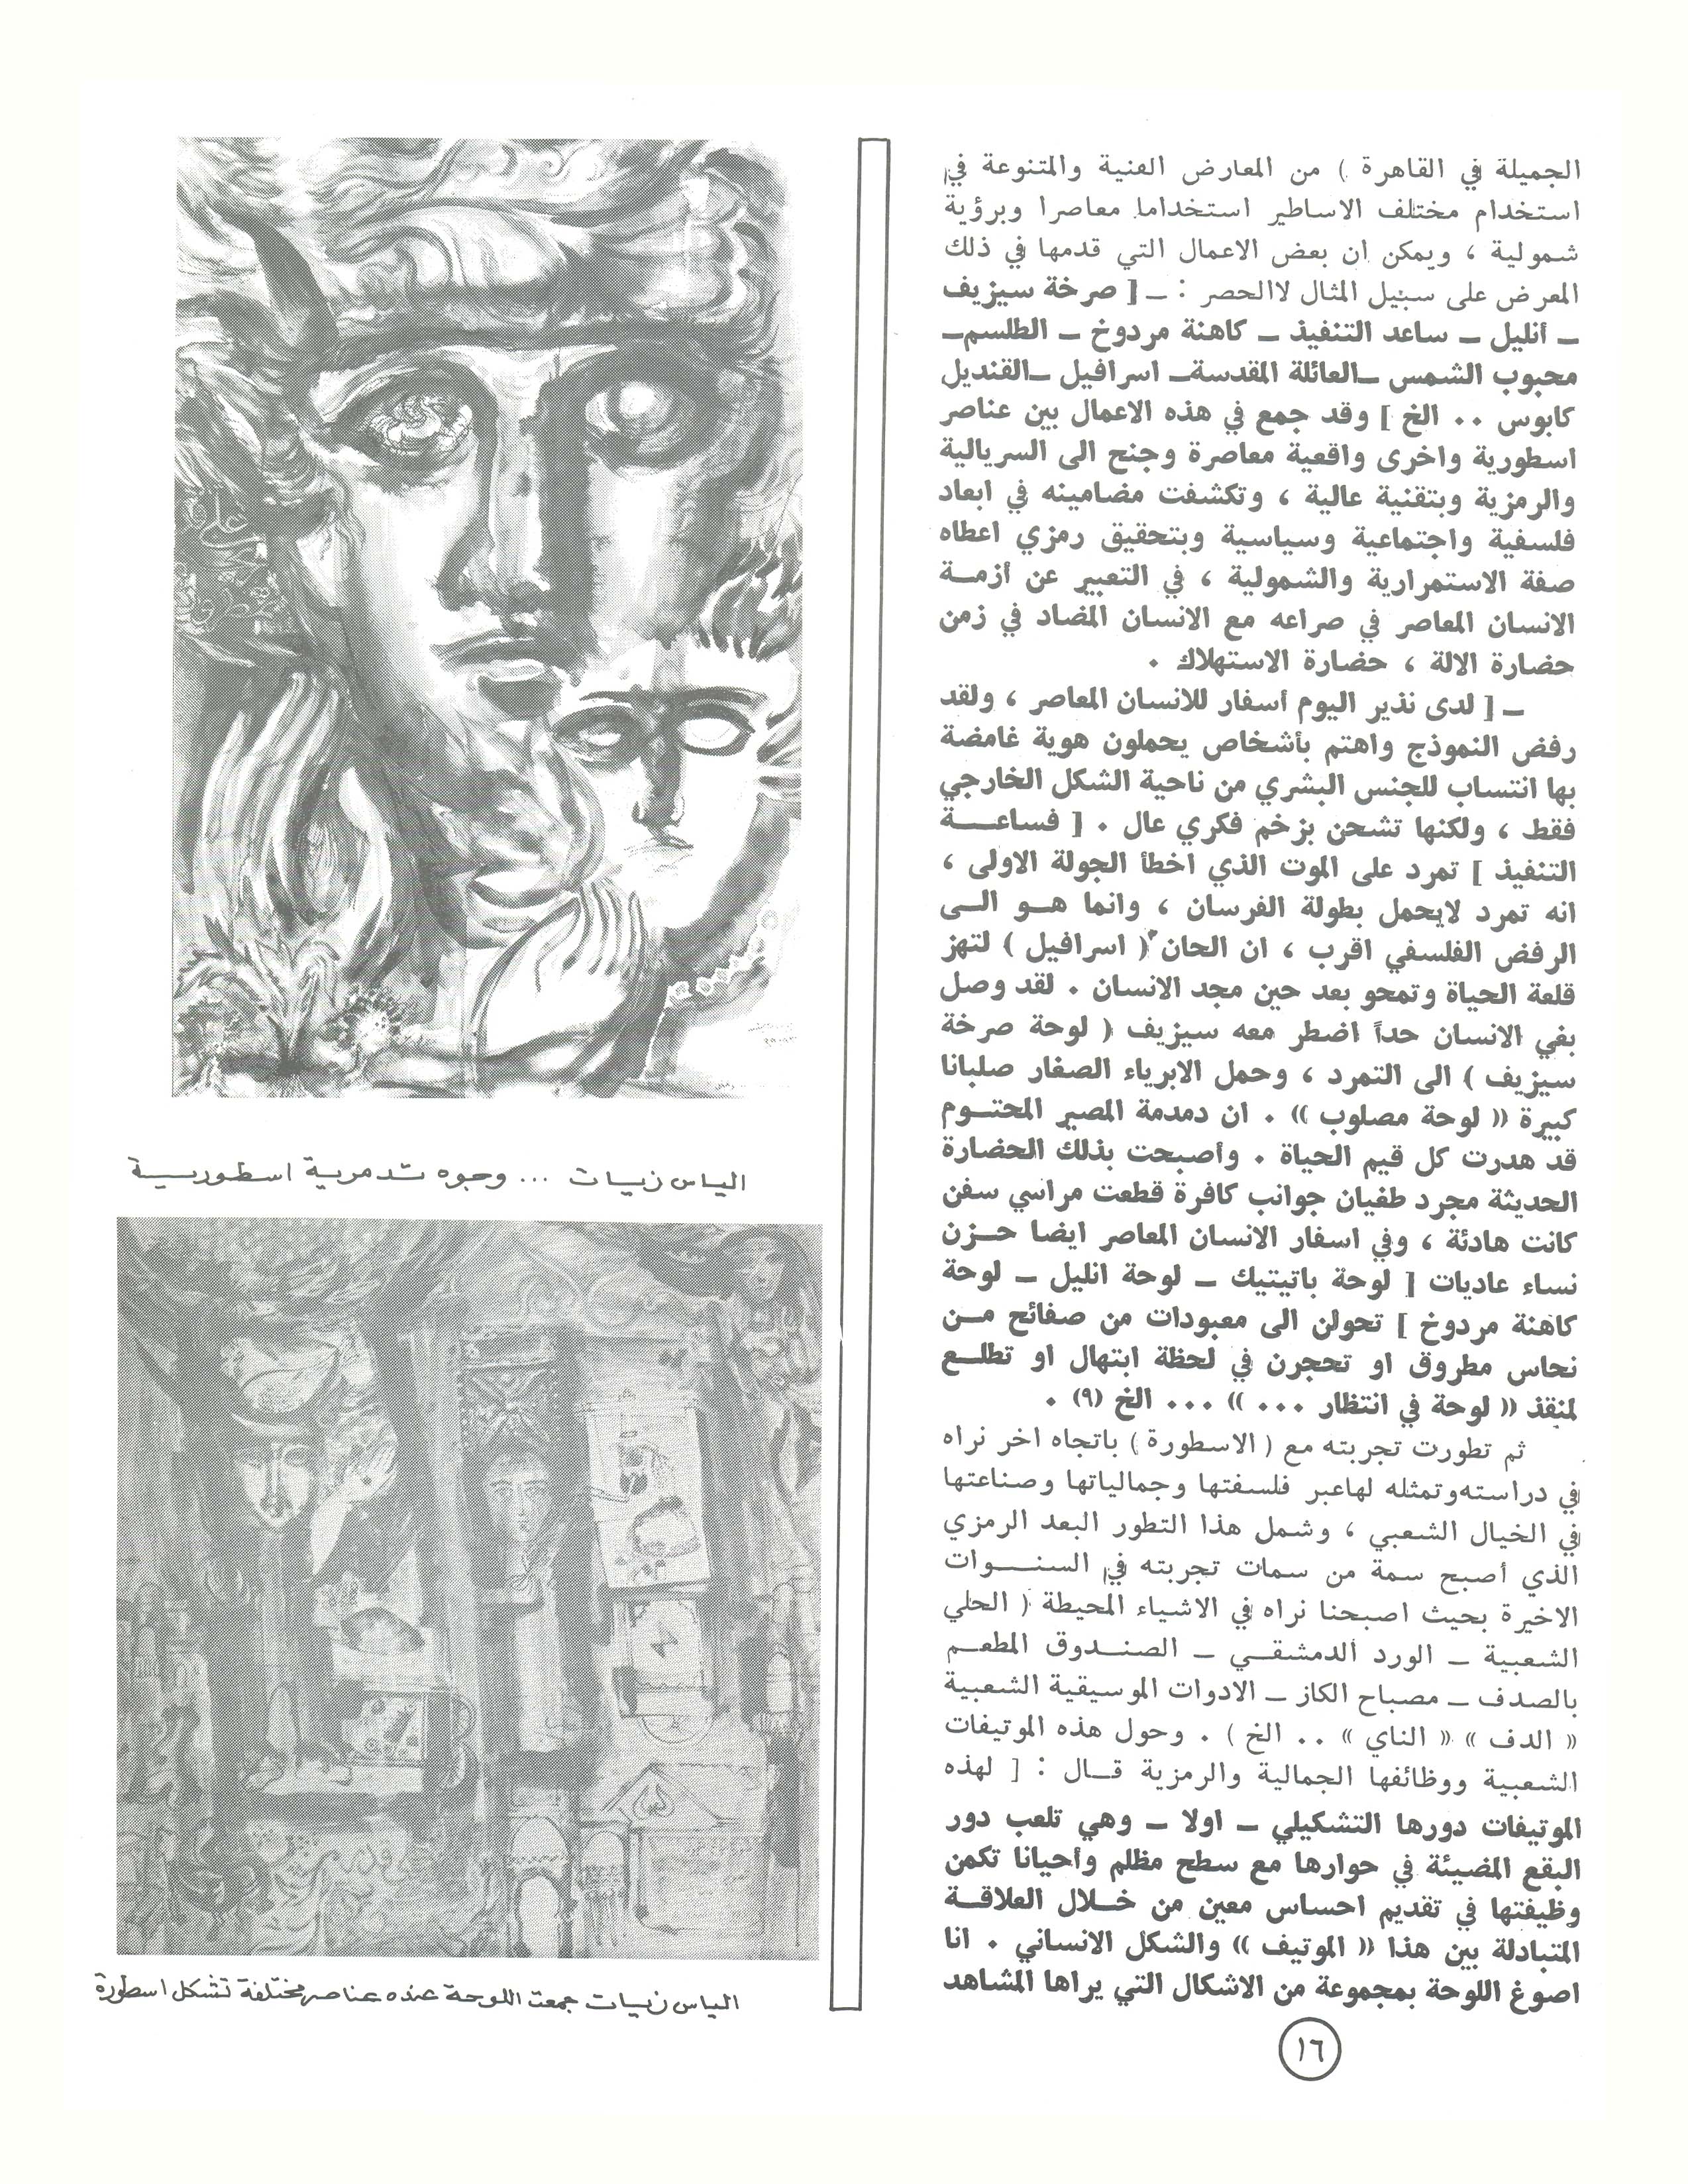 الجميلة في القاهرة ) من المعارض الفنية والمتنوعة في
استخدام مختلف الاساطير استخداما معاصرا وبرؤية
شمولية ، ويمكن ان بعض الاعمال التي قدمها في ذلك
المعرض على سبيل المثال لاالحصر : ـ [ صرخة سيزيف
ـ أنليل ـ ساعد التنفيذ ـ كاهنة مردوخ ـ الطلسم ـ
محبوب الشمس ـ العائلة المقدسة ـ اسرافيل ـ القنديل
كابوس .. الخ ] وقد جمع في هذه الاعمال بين عناصر
اسطورية واخرى واقعية معاصرة وجنح الى السريالية
والرمزية وبتقنية عالية ، وتكشفت مضامينه في ابعاد
فلسفية واجتماعية وسياسية وبتحقيق رمزي اعطاه
صفة الاستمرارية والشمولية ، في التعبير عن أزمــة
الانسان المعاصر في صراعه مع الانسان المضاد في زمن
حضارة الالة ، حضارة الاستهلاك .
ـ [ لدى نذير اليوم أسفار للانسان المعاصر ، ولقد
رفض النموذج واهتم بأشخاص يحملون هوية غامضة
بها انتساب للجنس البشري من ناحية الشكل الخارجي
فقط ، ولكنها تشحن بزخم فكري عال . [ فساعـــة
التنفيذ ] تمرد على الموت الذي اخطأ الجولة الاولى ،
انه تمرد لايحمل بطولة الفرسان ، وانما هــو الــى
الرفض الفلسفي اقرب ، ان الحان ( اسرافيل ) لتهز
قلعة الحياة وتمحو بعد حين مجد الانسان . لقد وصل
بغي الانسان حداً اضطر معه سيزيف ( لوحة صرخة
سيزيف ) الى التمرد ، وحمل الابرياء الصغار صلبانا
كبيرة (( لوحة مصلوب )) . ان دمدمة المصير المحتــوم
قد هدرت كل قيم الحياة . وأصبحت بذلك الحضارة
الحديثة مجرد طغيان جوانب كافرة قطعت مراسي سفن
كانت هادئة ، وفي اسفار الانسان المعاصر ايضا حــزن
نساء عاديات [ لوحة باتيتيك ـ لوحة انليل ـ لوحة
كاهنة مردوخ ] تحولن الى معبودات من صفائح مــن
نحاس مطروق او تحجرن في لحظة ابتهال او تطلــع
لمنقذ (( لوحة في انتظار ... )) ... الخ (٩) .
ثم تطورت تجربته مع ( الاسطورة ) باتجاه اخر نراه
في دراسته وتمثله لهاعبر فلسفتها وجمالياتها وصناعتها
في الخيال الشعبي ، وشمل هذا التطور البعد الرمزي
الذي أصبح سمة من سمات تجربته في السنــوات
الاخيرة بحيث اصبحنا نراه في الاشياء المحيطة ( الحلي
الشعبية ـ الورد الدمشقــي ـ الصنــدوق المطعــم
بالصدف ـ مصباح الكاز ـ الادوات الموسيقية الشعبية
(( الدف )) (( الناي )) .. الخ ) . وحول هذه الموتيفات
الشعبية ووظائفها الجمالية والرمزية قــال : [ لهذه
الموتيفات دورها التشكيلي ـ اولا ـ وهي تلعب دور
البقع المضيئة في حوارها مع سطح مظلم وأحيانا تكمن
وظيفتها في تقديم احساس معين من خــلال العلاقــة
المتبادلة بين هذا (( الموتيف )) والشكل الانساني . انا
اصوغ اللوحة بمجموعة من الاشكال التي يراها المشاهد
١٦
الياس زيات ... وجوه تدمرية اسطوريــة
الياس زيات جمعت اللوحة عنده عناصر مختلفة تشكل اسطورة